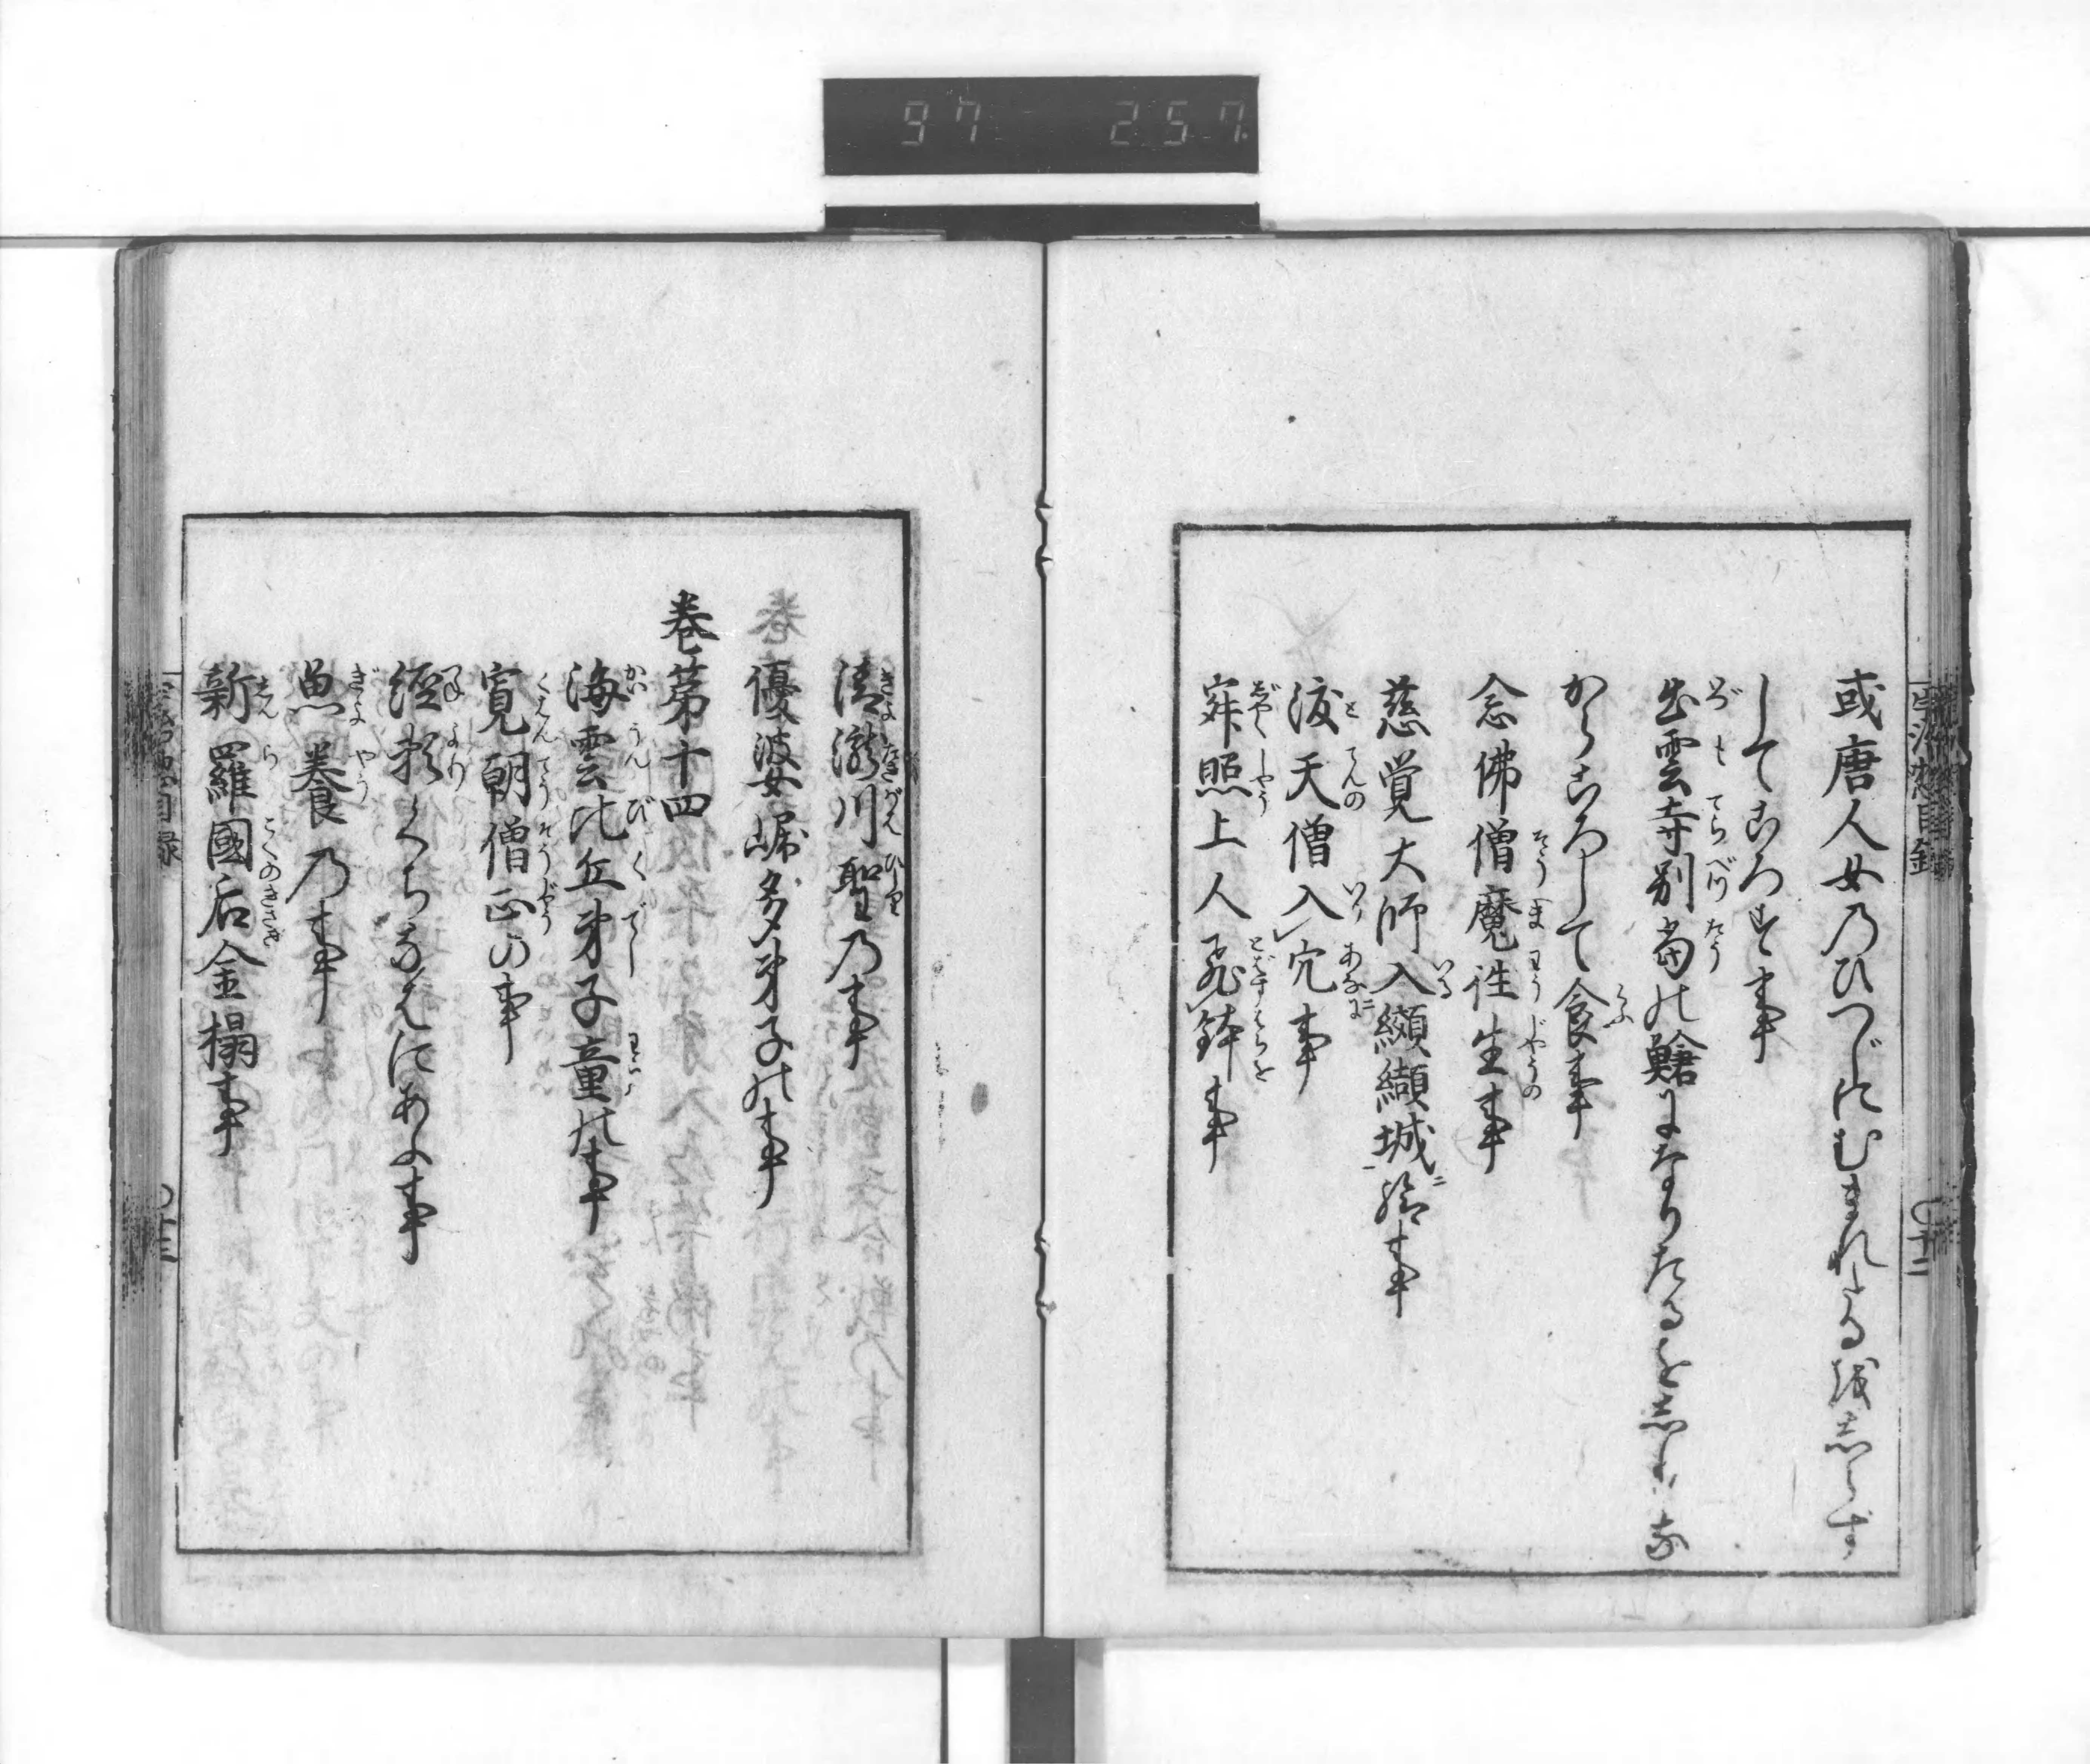 97 257
或唐人女乃ひつじにむまれたる越志らず
してころす事
出雲寺別當の鯰になりたるを志りな
からころして食事
念佛僧魔往生事
慈覚大師入纐纈城給事
渡天僧入穴事
寂照上人飛鉢事
清瀧川聖乃事
優波崛多弟子の事
巻第十四
海雲比丘弟子童の事
寛朝僧正の事
經頼くちなはにあふ事
魚養乃事
新羅國后金榻事